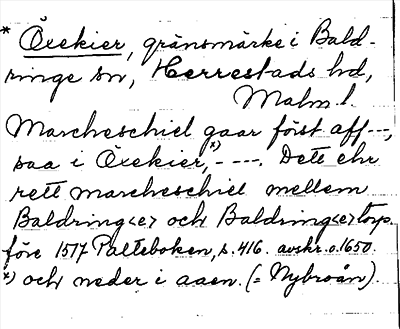 * Öxekier, gränsmärke i Bald-
ringe sn, Herrestads hd,
Malm. l.
Marcheschiel gaar först aff ---,
saa i Öxekier,*) - ---. Dett ehr
rett marcheschiel mellem
Baldring<e> och Baldring<e>torp.
före 1517 Palteboken, s. 416. avskr. o. 1650.
*) och neder i aaen. (= Nybroån).